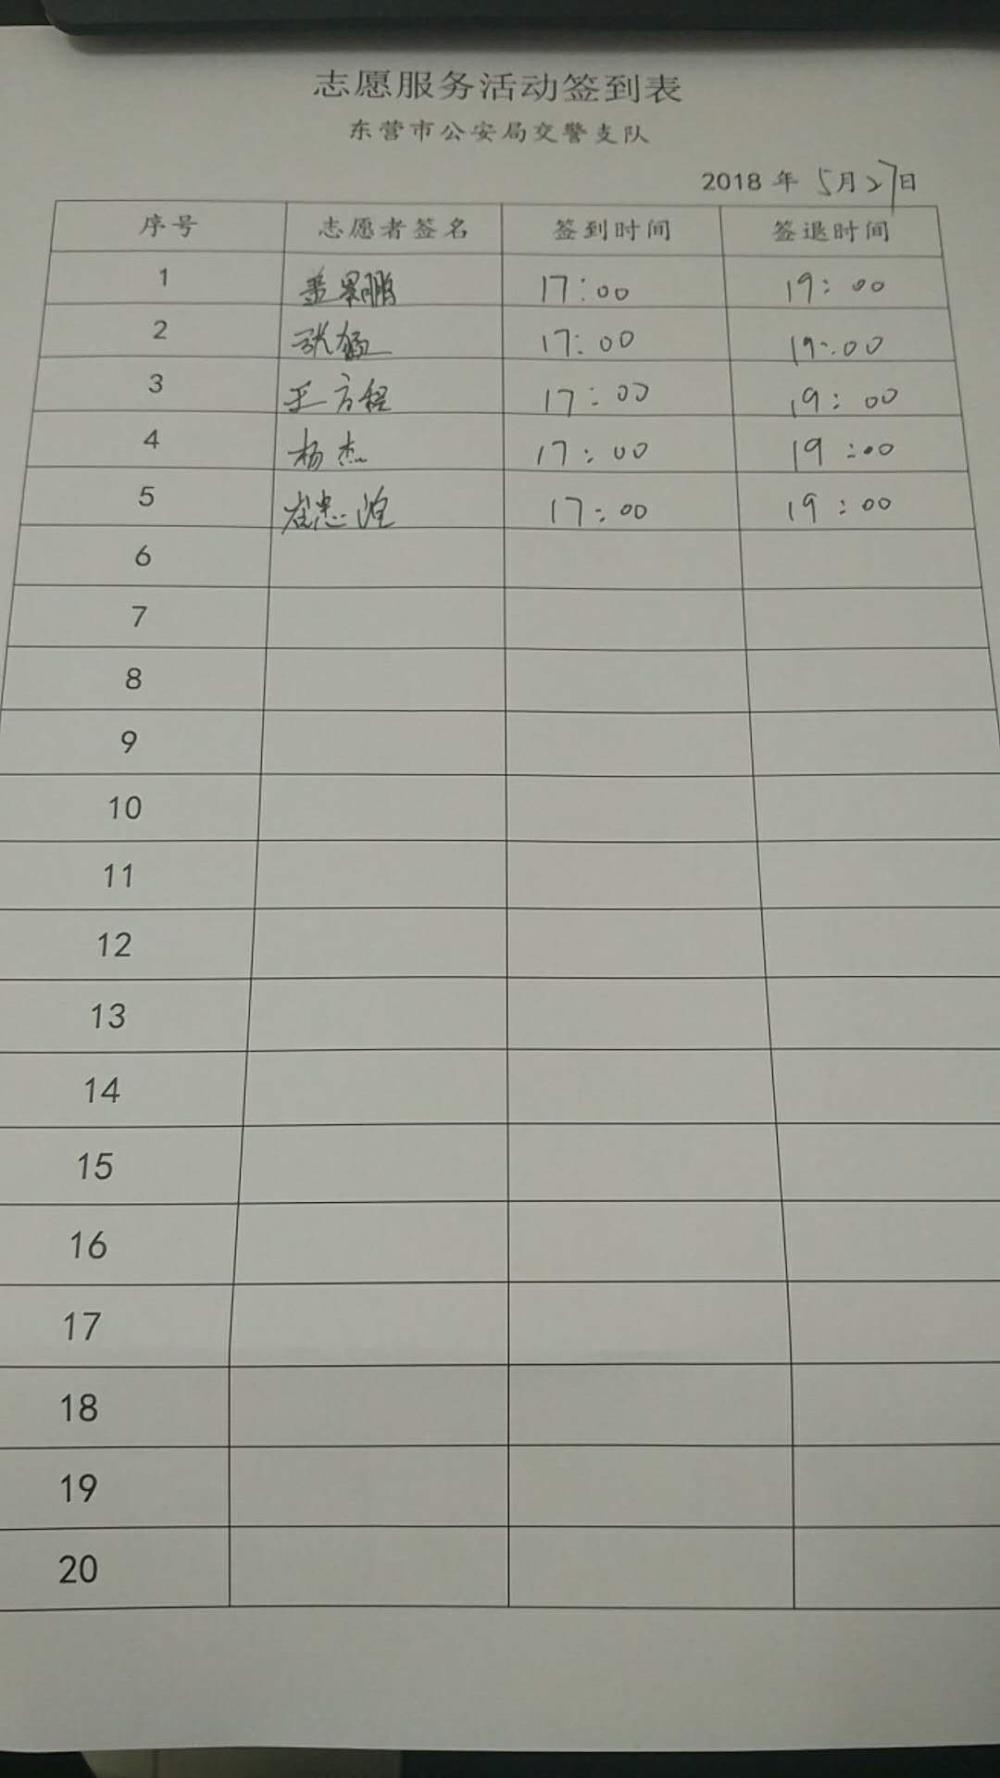 志愿服务活动签到表
东营市公安局交警支队
2018 年 5月27日
序号 志愿者签名 签到时间 签退时间
1 17:00 19:00
2 张 17:00 19:00
3 王方程 17:00 19:00
4 杨杰 17:00 19:00
5 崔忠 17:00 19:00
6
7
8
9
10
11
12
13
14
15
16
17
18
19
20